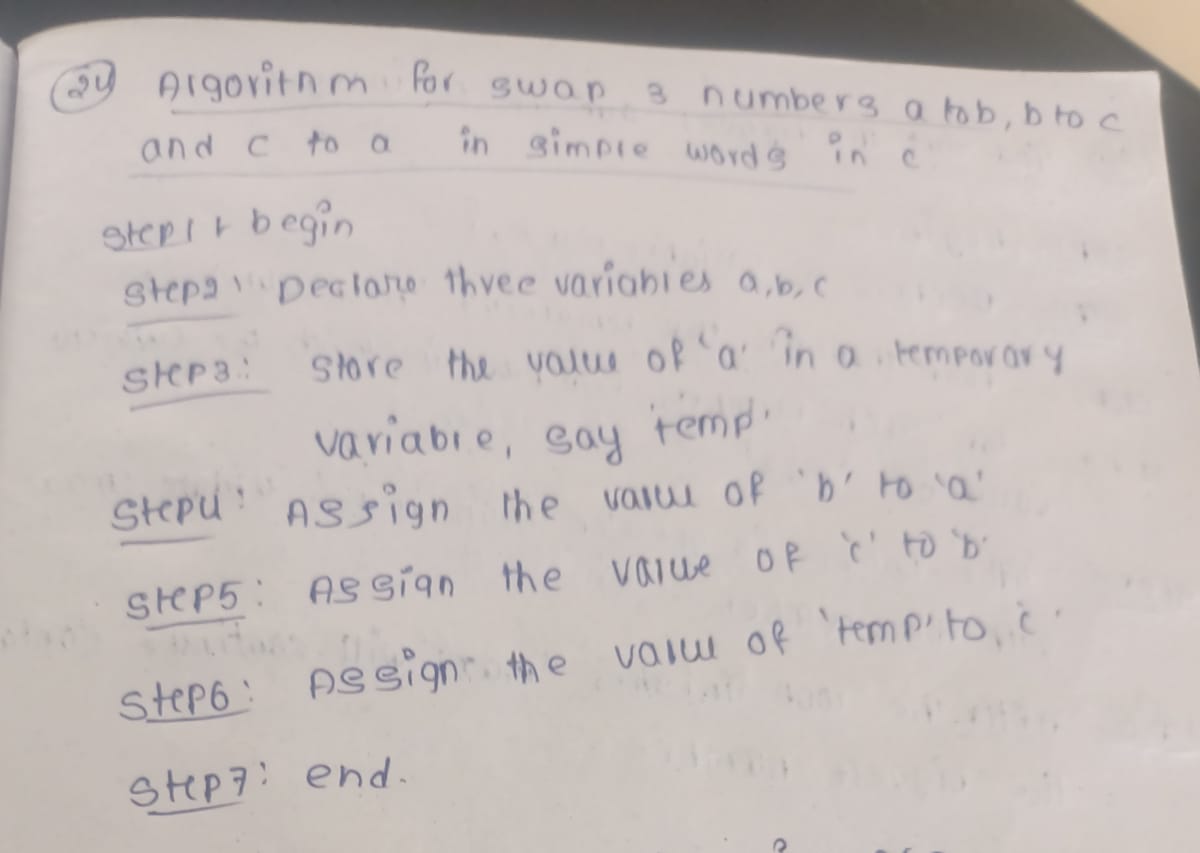 24 Algorithm for swap 3 numbers a to b, b to c
and c to a in simple words in c
Step1: begin
Step2: Declare three variables a,b,c
Step3: Store the value of 'a' in a temporary
variable, say 'temp'
Step4: Assign the value of 'b' to 'a'
Step5: Assign the value of 'c' to 'b'
Step6: Assign the value of 'temp' to 'c'
Step7: end.